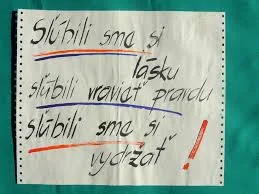 Sľúbili sme si
lásku
sľúbili vravieť pravdu
sľúbili sme si
vydržať !